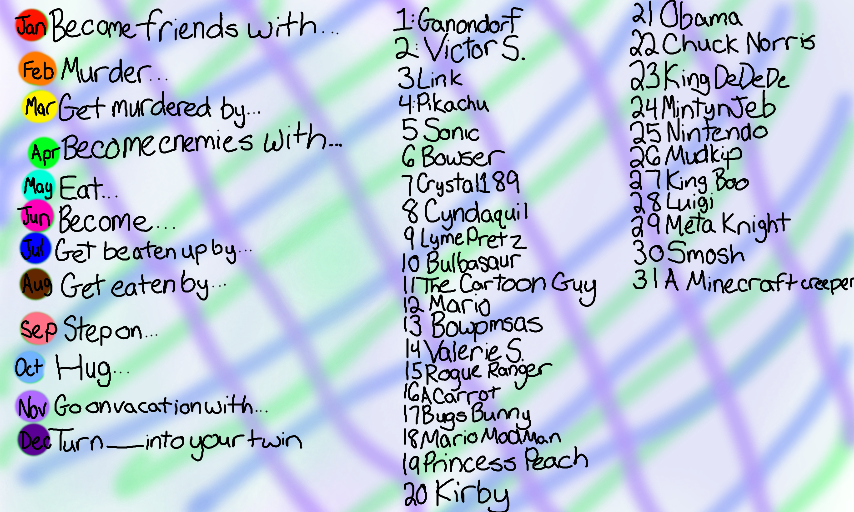 Jan Become friends with...
Feb Murder...
Mar Get murdered by...
Apr Become enemies with...
May Eat...
Jun Become...
Jul Get beaten up by...
Aug Get eaten by...
Sep Step on...
Oct Hug...
Nov Go on vacation with...
Dec Turn ___ into your twin
1: Ganondorf
2: Victor S.
3 Link
4 Pikachu
5 Sonic
6 Bowser
7 Crystal189
8 Cyndaquil
9 LymePretz
10 Bulbasaur
11 The Cartoon Guy
12 Mario
13 Bowpmsas
14 Valerie S.
15 Rogue Ranger
16 A Carrot
17 Bugs Bunny
18 Mario Modman
19 Princess Peach
20 Kirby
21 Obama
22 Chuck Norris
23 King DeDeDe
24 MintynJeb
25 Nintendo
26 Mudkip
27 King Boo
28 Luigi
29 Meta Knight
30 Smosh
31 A Minecraft creeper